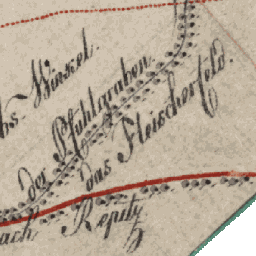 bs. Wiesel.
der Pfuhlgraben
das Fleischerfeld.
nach Repitz